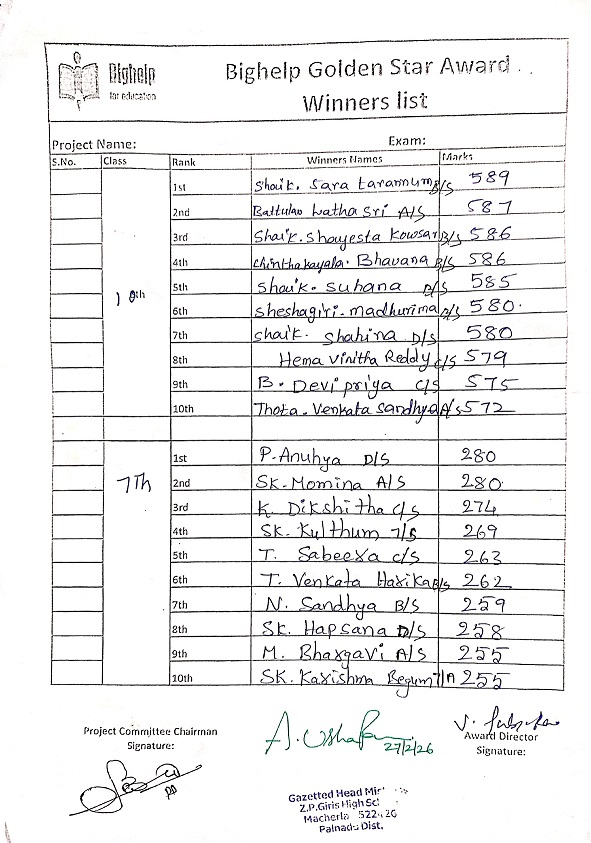 Bighelp
for education
Bighelp Golden Star Award
Winners list
Project Name: Exam:
S.No. Class Rank Winners Names Marks
10th
1st Shaik. Sara tarannum B/S 589
2nd Lathasri A/S 587
3rd Shaik. Shayesta Kowsar B/S 586
4th Chinthakayala. Bhavana B/S 586
5th Shaik. Suhana D/S 585
6th Sheshagiri. madhurima B/S 580.
7th Shaik. Shahina D/S 580
8th Hema Vinitha Reddy C/S 579
9th B. Devipriya C/S 575
10th Thota. Venkata Sandhya A/S 572
7Th
1st P. Anuhya D/S 280
2nd SK. Momina A/S 280
3rd K. Dikshitha C/S 274
4th SK. Kulthum 7/S 269
5th T. Sabeera C/S 263
6th T. Venkata Harika B/S 262
7th N. Sandhya B/S 259
8th SK. Hapsana D/S 258
9th M. Bhargavi A/S 255
10th SK. Karishma Begum 7/A 255
Project Committee Chairman
Signature:
27/2/26
Award Director
Signature:
Gazetted Head
Z.P.Girls High
Macherla
Palnadu Dist.